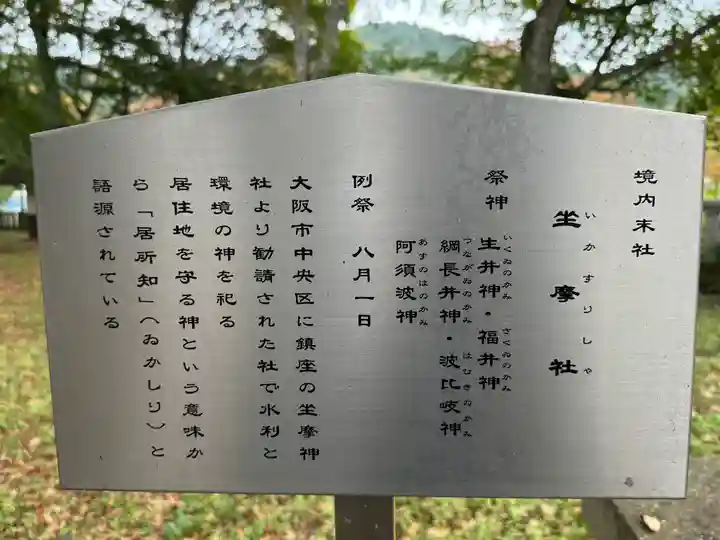 境内末社
坐摩社
いかすりしゃ
祭神 生井神・福井神
いくゐのかみ さくゐのかみ
綱長井神・波比岐神
つながゐのかみ はひきのかみ
阿須波神
あすのはのかみ
例祭 八月一日
大阪市中央区に鎮座の坐摩神
社より勧請された社で水利と
環境の神を祀る
居住地を守る神という意味か
ら「居所知」(ゐかしり)と
語源されている